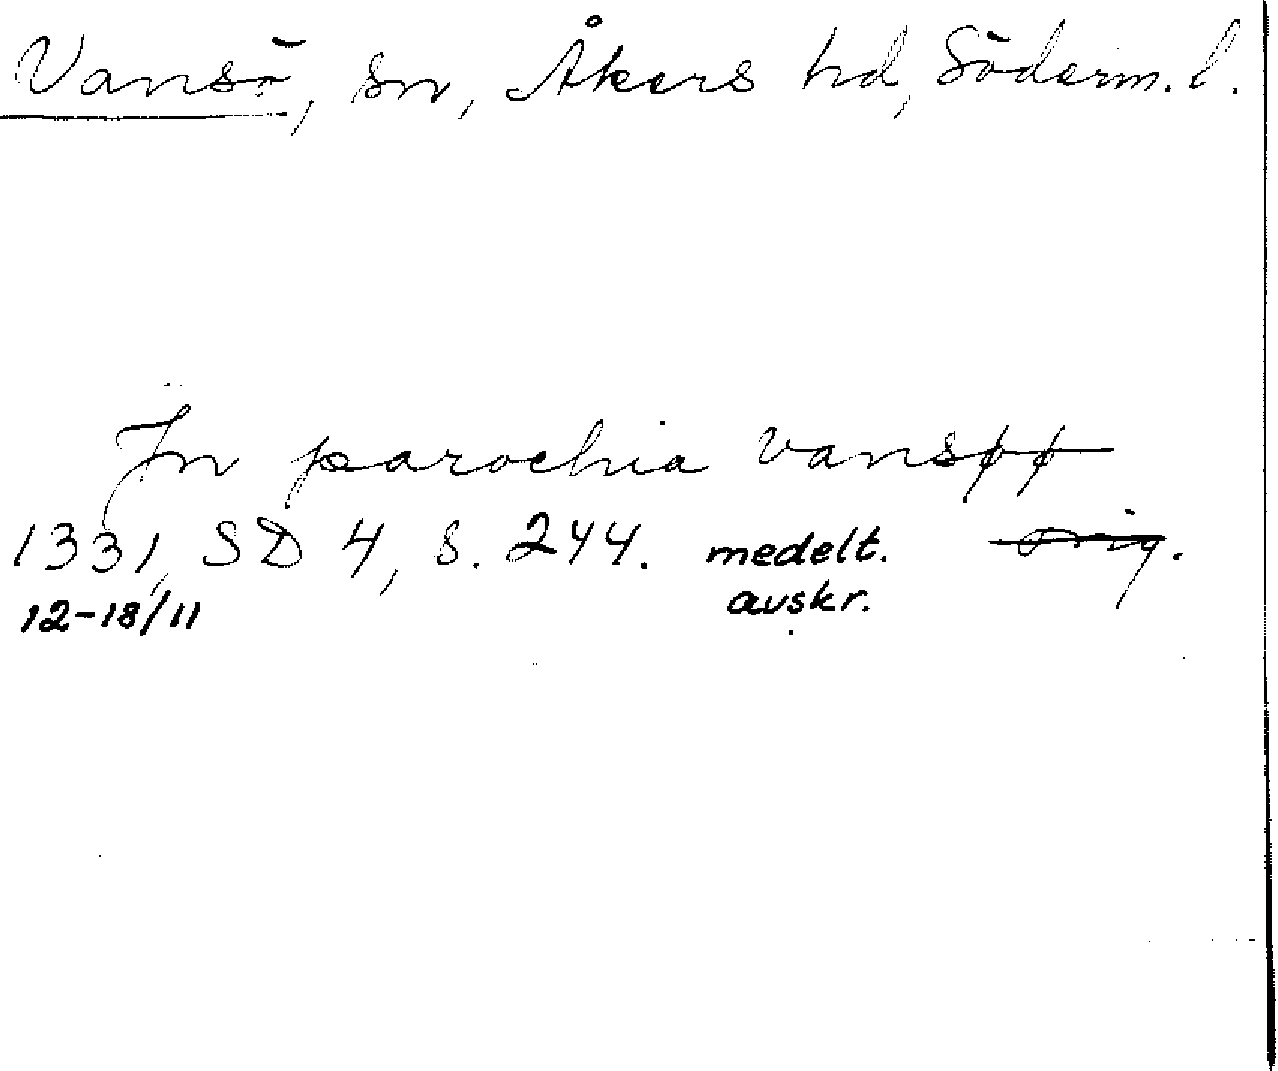 Vansö, sn, Åkers hd, Söderm. l.
In parochia vansøø
1331, SD 4, s. 244. medelt. orig.
12-18/11 avskr.